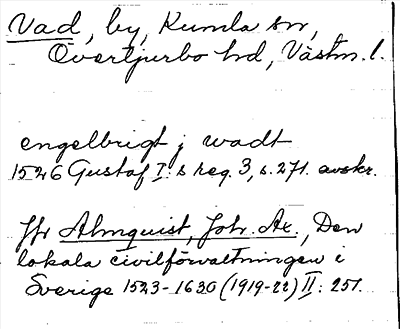 Vad, by, Kumla sn,
Övertjurbo hd, Västm. l.
engelbrigt j wadt
1526 Gustaf I:s reg. 3, s. 271. avskr.
Jfr Almquist, Joh. Ax., Den
lokala civilförvaltningen i
Sverige 1523-1630 (1919-22) II: 251.